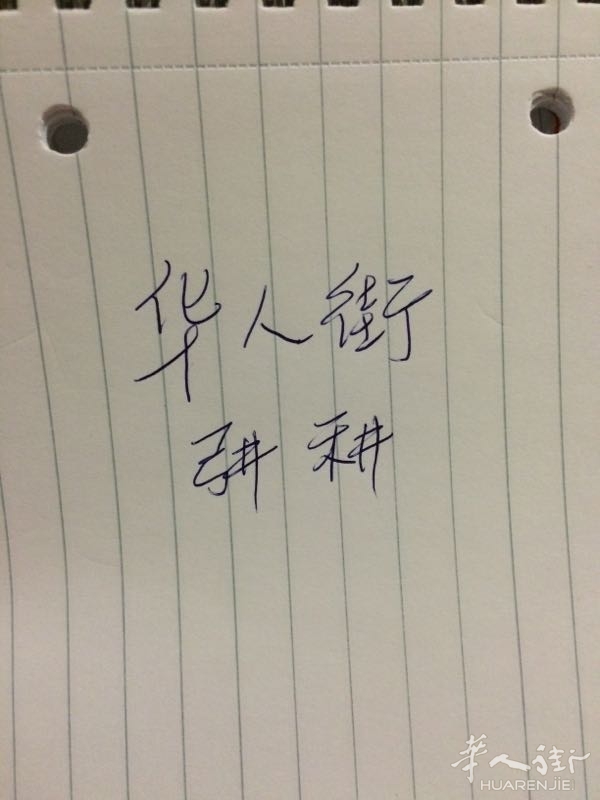 华人街
耕
華人街
HUARENJIE